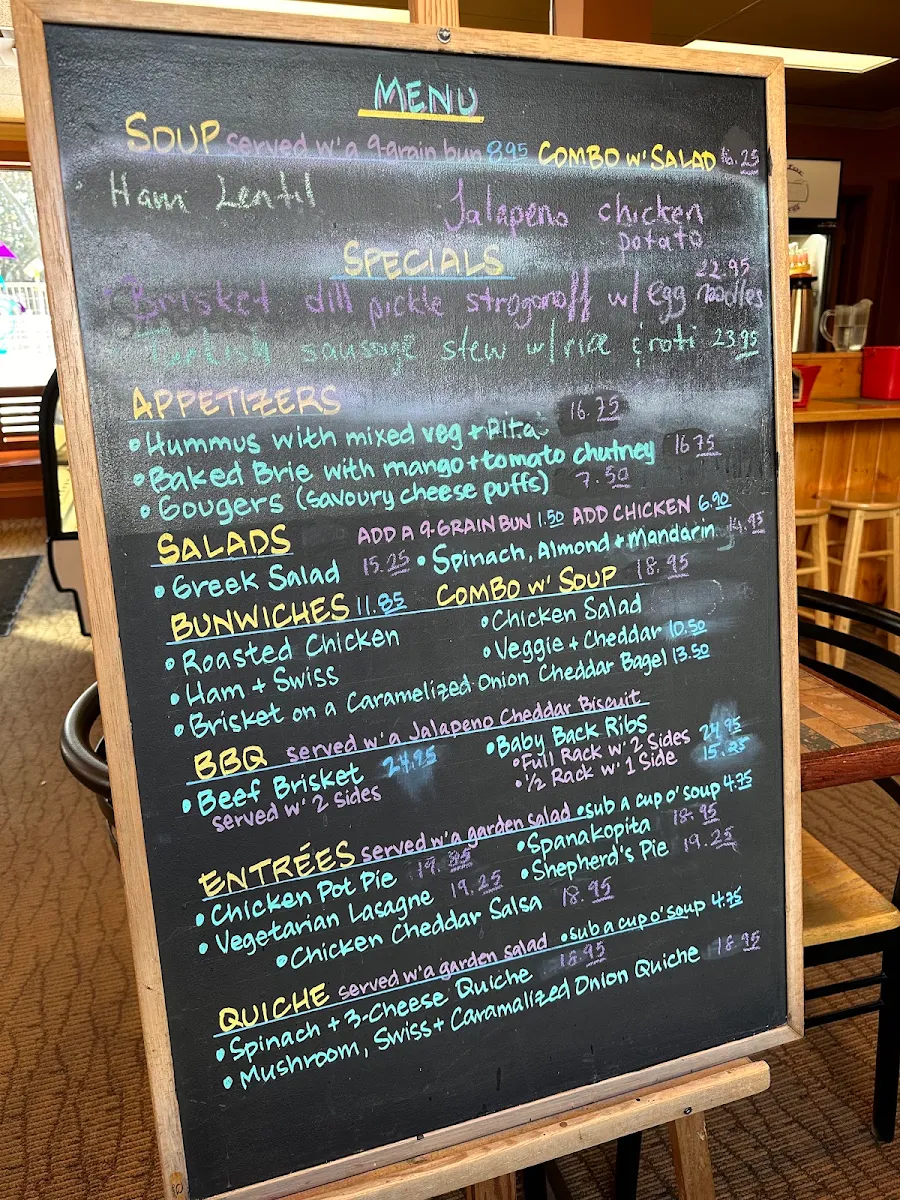 MENU
SOUP served w'a 9-grain bun 8.95 COMBO w' SALAD 16.25
Ham Lentil
Jalapeno chicken
potato
SPECIALS
22.95
Brisket dill pickle stroganoff w/ egg noodles
sausage stew w/ rice & roti 23.95
APPETIZERS
• Hummus with mixed veg + Pita 16.75
• Baked Brie with mango + tomato chutney 16.75
• Gougers (savoury cheese puffs) 7.50
SALADS ADD A 9-GRAIN BUN 1.50 ADD CHICKEN 6.90
• Greek Salad 15.25 • Spinach, Almond + Mandarin 14.95
BUNWICHES 11.85 COMBO w' SOUP 18.95
• Roasted Chicken • Chicken Salad
• Ham + Swiss • Veggie + Cheddar 10.50
• Brisket on a Caramelized Onion Cheddar Bagel 13.50
BBQ served w'a Jalapeno Cheddar Biscuit
• Beef Brisket 24.95 • Baby Back Ribs
served w' 2 sides • Full Rack w' 2 Sides 24.95
• 1/2 Rack w' 1 Side 15.25
ENTRÉES served w'a garden salad • sub a cup o' soup 4.75
• Chicken Pot Pie • Spanakopita 18.95
• Vegetarian Lasagne 19.25 • Shepherd's Pie 19.25
• Chicken Cheddar Salsa 18.95
QUICHE served w'a garden salad • sub a cup o' soup 4.75
• Spinach + 3-Cheese Quiche 18.95
• Mushroom, Swiss + Caramalized Onion Quiche 18.95